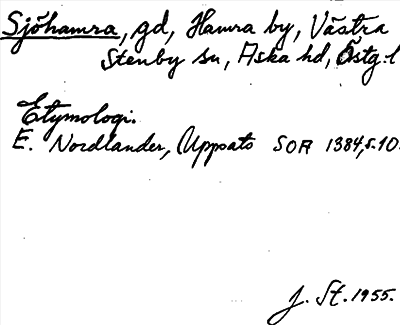 Sjöhamra, gd, Hamra by, Västra
Stenby sn, Aska hd, Östg.l
Etymologi.
E. Nordlander, Uppsats SOA 1384, s. 10.
J. St. 1955.